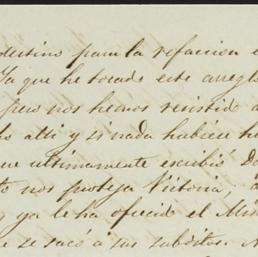 destino para la refaccion e
Ya que he tocado este arregl
pero nos hemos resistido a
lo alto y si nada hubiese h
ue ultimamente escribió Do
to nos proteja Victoria, a
s ya le ha ofrecido el Min
e se sacó a sus subditos. A